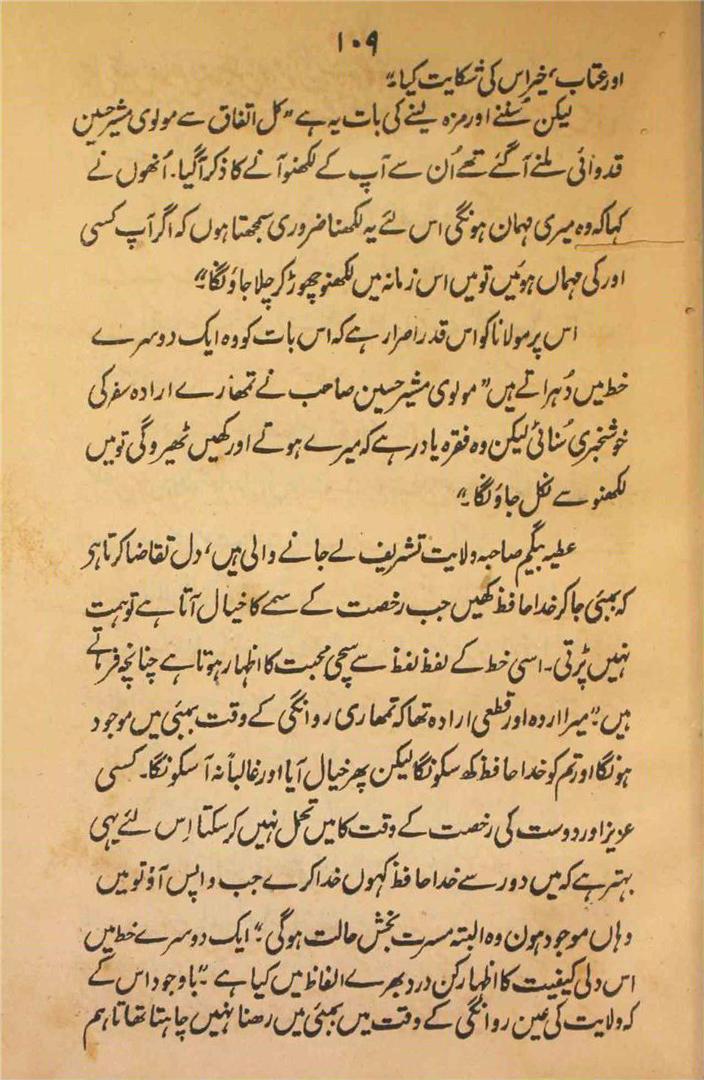 ۱۰۹
اور عتاب، خیر اس کی شکایت کیا۔"
لیکن سُننے اور مزہ لینے کی بات یہ ہے "کل اتفاق سے مولوی مشیر حسین
قدوائی ملنے آ گئے تھے اُن سے آپ کے لکھنو آنے کا ذکر آ گیا۔ اُنھوں نے
کہا کہ وہ میری مہمان ہونگی اس لئے یہ لکھنا ضروری سمجھتا ہوں کہ اگر آپ کسی
اور کی مہماں ہوئیں تو میں اس زمانہ میں لکھنو چھوڑ کر چلا جاؤنگا۔"
اس پر مولانا کو اس قدر اصرار ہے کہ اس بات کو وہ ایک دوسرے
خط میں دُہراتے ہیں "مولوی مشیر حسین صاحب نے تمھارے ارادہ سفر کی
خوشخبری سُنائی لیکن وہ فقرہ یاد رہے کہ میرے ہوتے اور کھیں ٹھیروگی تو میں
لکھنو سے نکل جاؤنگا۔"
عطیہ بیگم صاحبہ ولایت تشریف لے جانے والی ہیں، دل تقاضا کرتا ہر
کہ بمبئی جا کر خدا حافظ کھیں جب رخصت کے سمے کا خیال آتا ہے تو ہمت
نہیں پڑتی۔ اسی خط کے لفظ لفظ سے سچی محبت کا اظہار ہوتا ہے چنانچہ فرماتے
ہیں "میرا اردہ اور قطعی ارادہ تھا کہ تمھاری روانگی کے وقت بمبئی میں موجود
ہونگا اور تم کو خدا حافظ کھ سکونگا لیکن پھر خیال آیا اور غالباً نہ آ سکونگا۔ کسی
عزیز اور دوست کی رخصت کے وقت کا میں تحمل نہیں کر سکتا اِس لئے یہی
بہتر ہے کہ میں دور سے خدا حافظ کہوں خدا کرے جب واپس آؤ تو میں
وہاں موجود ہون وہ البتہ مسرت بخش حالت ہوگی۔" ایک دوسرے خط میں
اس دلی کیفیت کا اظہار کن درد بھرے الفاظ میں کیا ہے۔ "باوجود اس کے
کہ ولایت کی عین روانگی کے وقت میں بمبئی میں رھنا نہیں چاہتا تھا تاہم